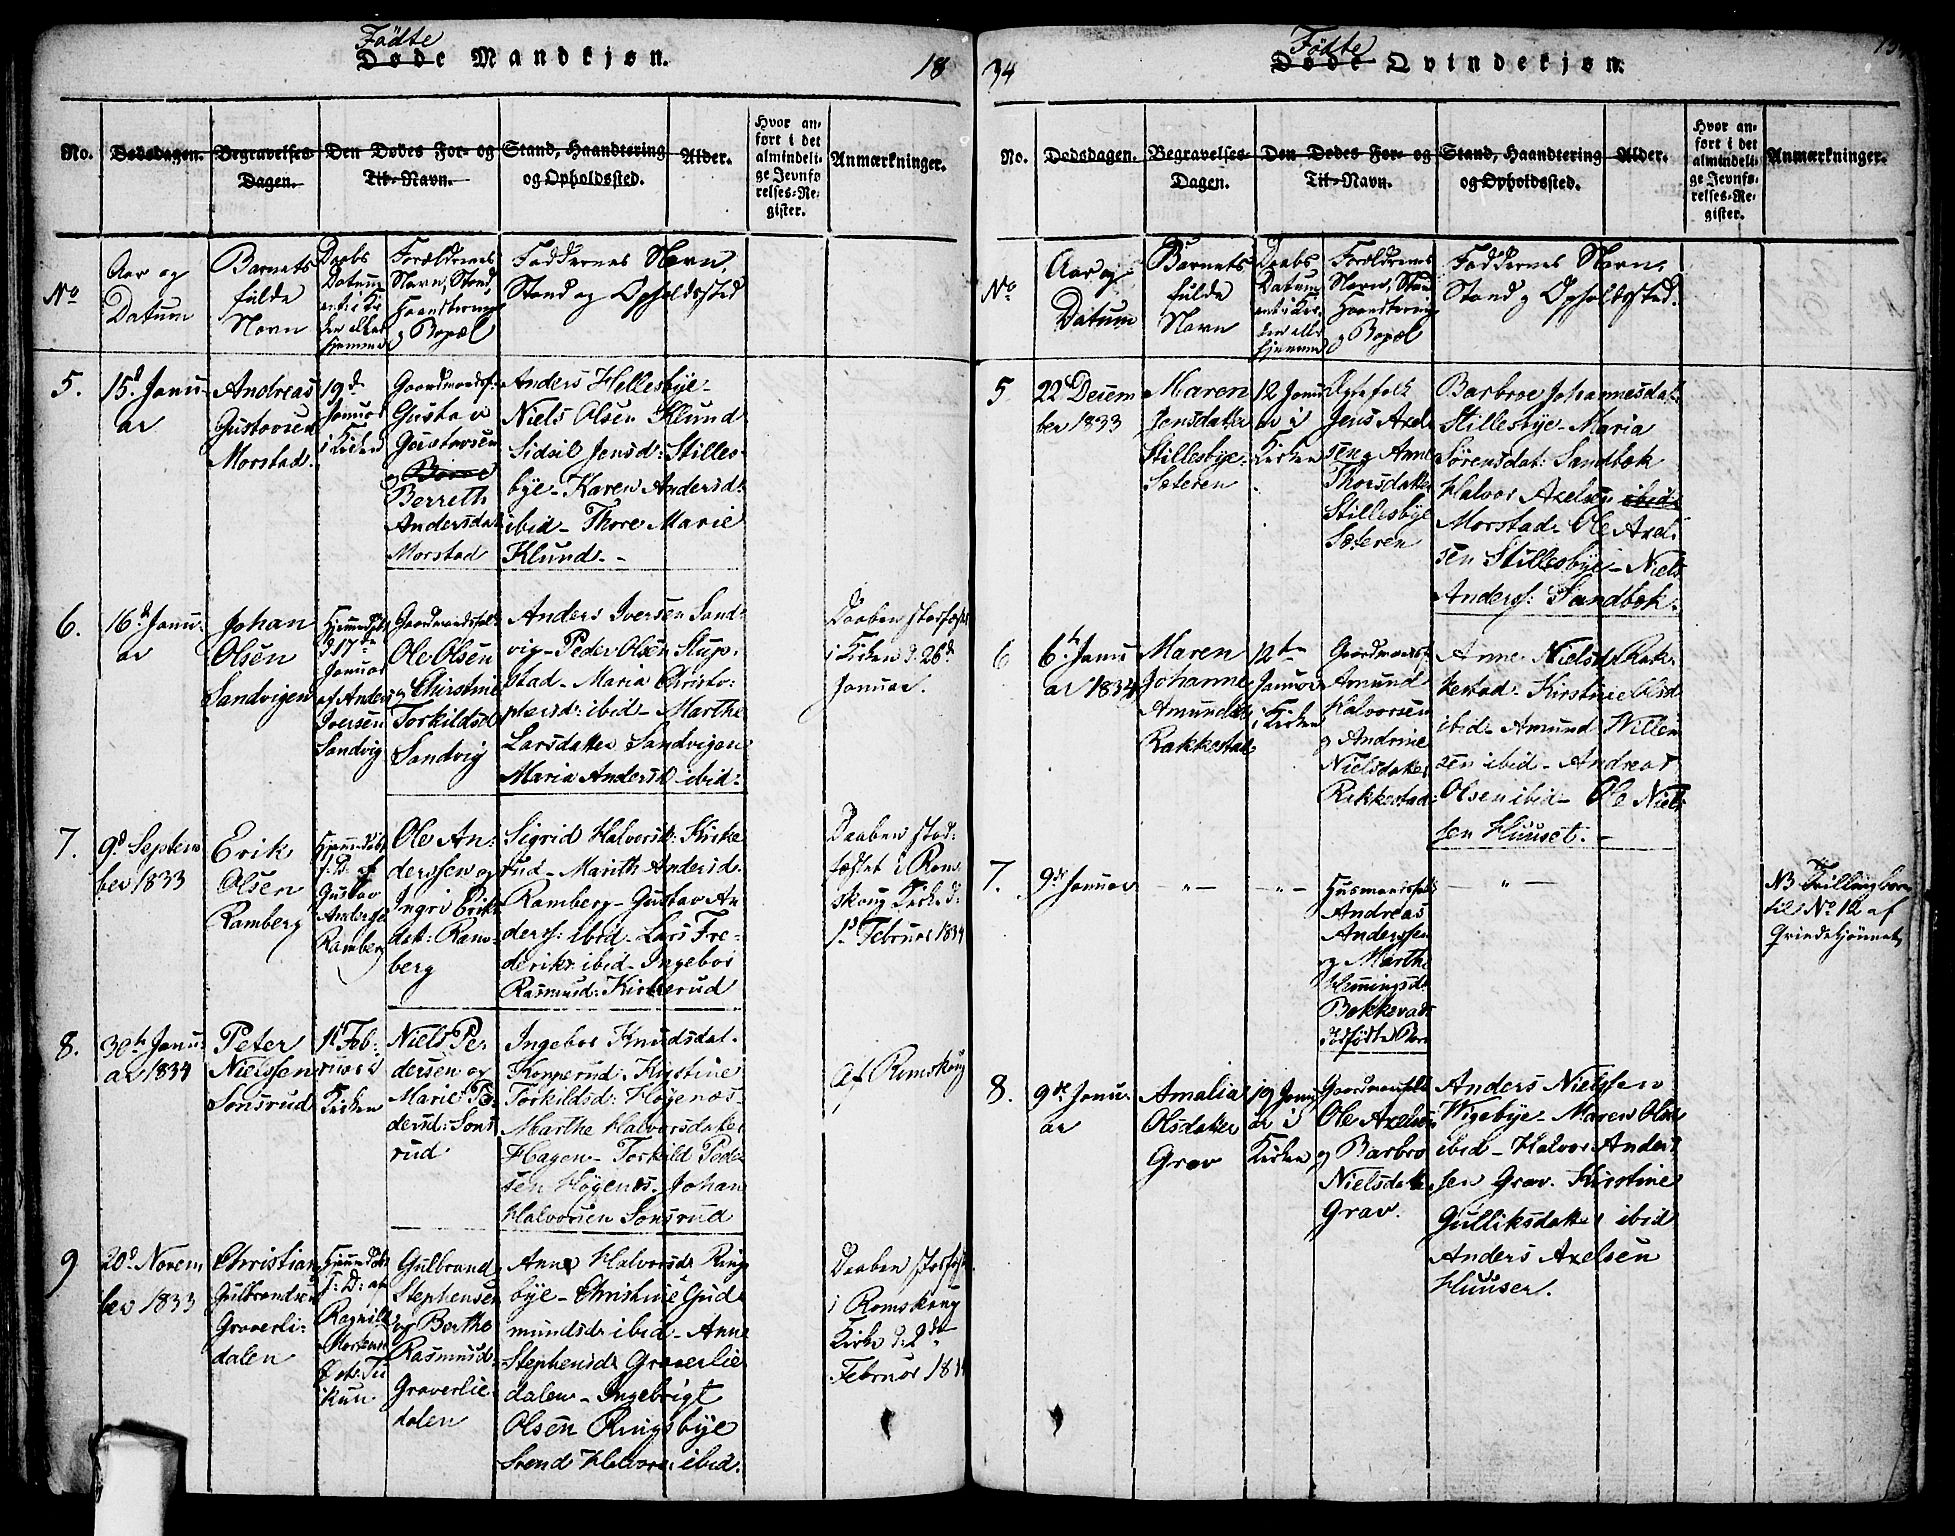 Födte
Døde Mandkjøn.
18
No.
Dødsdagen.
Begravelses-
Dagen.
Den Dødes For- og
Til-Navn.
Stand, Haandtering
og Opholdssted.
Alder.
Hvor an-
ført i det
almindeli-
ge Jevnfø-
relses-Re-
gister.
Anmærkninger.
No
Aar og
Datum
Barnets
fulde
Navn
Daabs
Datum
enten i Kir
ken eller
hjemme
Forældrenes
Navn, Stand,
Haandtering
og Bopæl
Faddernes Navn,
Stand og Opholdssted
5.
15d Janu-
ar
Andreas
Gustavsen
Morstad.
19de
Januar
i Kirken
Gaardmandsf:
Gustav
Gustavsen
og Berthe
Berreth
Andersdat
Morstad
Anders Hellesbye-
Niels Olsen Klund
Sidsil Jensd: Stilles-
bye- Karen Andersd:
ibid- Thore Marie
Klund.-
6.
16d Janu-
ar
Johan
Olsen
Sandvigen
Hjemmedøbt
d 17de
Januar
af Anders
Iversen
Sandvig
Gaardmandsfolk
Ole Olsen
og Christine
Torkildsd
Sandvig
Anders Iversen Sand-
vig- Peder Olsen Stup-
stad- Maria Christo-
phersd: ibid- Marthe
Larsdatter Sandvigen
Maria Andersd ibid:
Daaben stadfæst
i Kirken d. 26d
Januar.
7.
9d Septem
ber 1833
Erik
Olsen
Ramberg
Hjemmedøbt
f. D: af
Gustav
Anderse
Ramberg
Ole An-
derssen og
Ingri Eriks
dat: Ram-
berg
Sigrid Halvorsd: Kirke
rud- Marith Andersd.
Ramberg- Gustav An
derss: ibid- Lars Fre-
deriks: ibid- Ingebor
Rasmusd: Kirkerud
Daaben stad-
fæstet i Rom-
skoug Kirke d:
1d Februar 1834
8.
30te Janu-
ar 1834
Peter
Nielssen
Sonsrud
1d Feb-
ruar i
Kirken
Niels Pe-
dersen og
Marie Pe-
dersd: Sons
rud
Ingebor Knudsdat.
Kopperud- Kirstine
Torkildsd: Høgenæs-
Marthe Halvorsdatter
Hagen- Torkild Peder
sen Høgenæs- Johan
Halvorsen Sonsrud
Af Romskoug
9
20d Novem
ber 1833
Christian
Gulbrandsen
Graverli-
dalen
Hjemmedøbt
f: D: af
Ragnild
Mortens
Gulbrand
Stephensen
og Berthe
Rasmusd:
Graverlie-
dalen
Anne Halvorsdr Ring
bye- Christine Gud
mundsdr ibid- Anne
Stephensdr Graverlie
dalen- Ingebrigt
Olsen Ringsbye
Svend Halvors: ibid.
Daaben stadfæst.
i Romskoug
Kirke d: 2den
Februar 1834
34
Födte
Døde Qvindekjøn.
No.
Dødsdagen.
Begravelses-
Dagen.
Den Dødes For- og
Til-Navn.
Stand, Haandtering
og Opholdssted.
Alder.
Hvor an-
ført i det
almindeli-
ge Jevnfø-
relses-Re-
gister.
Anmærkninger.
No
Aar og
Datum
Barnets
fulde
Navn
Daabs
Datum
enten i Kir-
ken eller
hjemme
Forældrenes
Navn, Stand
Haandtering
og Bopæl
Faddernes Navn,
Stand og Opholdssted.
5
22 Decem
ber 1833
Maren
Jensdatter
Stillesbye-
Sæteren
12 Janu
ar i
Kirken
Ægtefolk
Jens Axel-
sen og Anne
Thorsdatter
Stillesbye
Sæteren
Barbroe Johannesdat.
Stillesbye- Maria
Sørensdat: Sandbæk
Halvor Axelsen ibid:
Morstad- Ole Axel-
sen Stillesbye- Niels
Anders: Sandbæk.
6
6te Janu
ar 1834
Maren
Johanne
Amundsdat
Rakkestad
12te
Januar
i Kirken
Gaardmandsf
Amund
Halvorsen
og Andrine
Nielsdatter
Rakkestad:
Anne Nielsd Rak-
kestad- Kirstine Olsd
ibid- Amund Willem
sen ibid- Andreas
Olsen ibid- Ole Niel-
sen Huuset.-
7.
9de Januar
-"-
-"-
Husmandsfolk
Andreas
Anderssen
og Marthe
Hemmingsd
Bækkevad:
Dødfødte Barn
-"-
NB Tvillingbarn
til No 12 af
8.
9de Janu-
ar
Amalia
Olsdatter
Grav
19 Janu
ar i
Kirken
Gaardmandsfolk
Ole Axelsen
og Barbro
Nielsdatter
Grav.
Anders Nielssen
Wigebye- Maren Olsd
ibid- Halvor Anders
sen Grav. Kirstine
Gulliksdatter ibid
Anders Axelsen
Huuser.